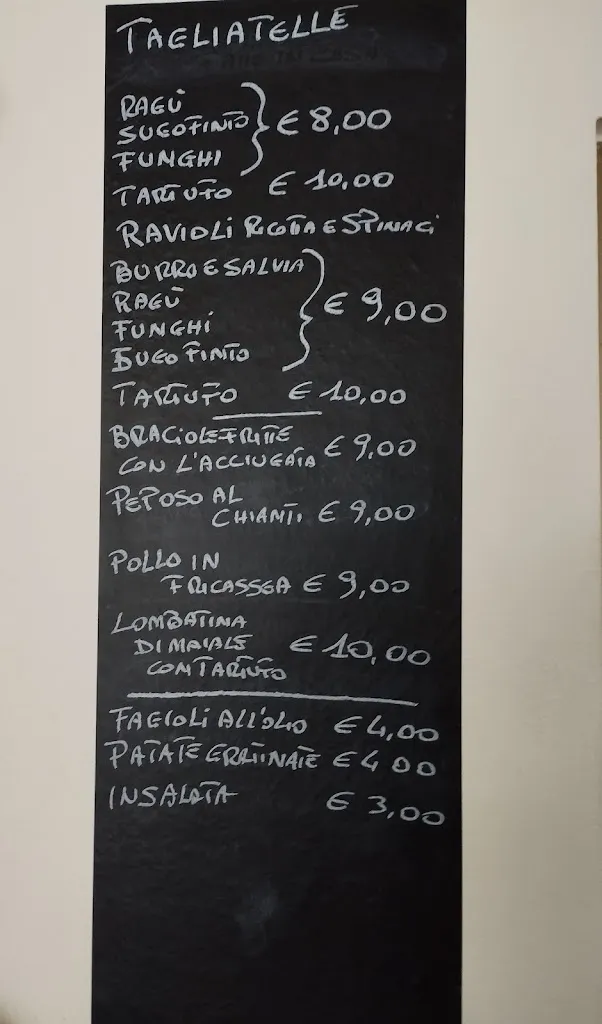 TAGLIATELLE
RAGÙ
SUGO FINTO
FUNGHI
€ 8,00
TARTUFO € 10,00
RAVIOLI RICOTTA E SPINACI
BURRO E SALVIA
RAGÙ
FUNGHI
SUGO FINTO
€ 9,00
TARTUFO € 10,00
BRACIOLE FRITTE
CON L'ACCIUGATA € 9,00
PEPOSO AL
CHIANTI € 9,00
POLLO IN
FRICASSEA € 9,00
LOMBATINA
DI MAIALE € 10,00
CON TARTUFO
FAGIOLI ALL'OLIO € 4,00
PATATE GRATINATE € 4 00
INSALATA € 3,00